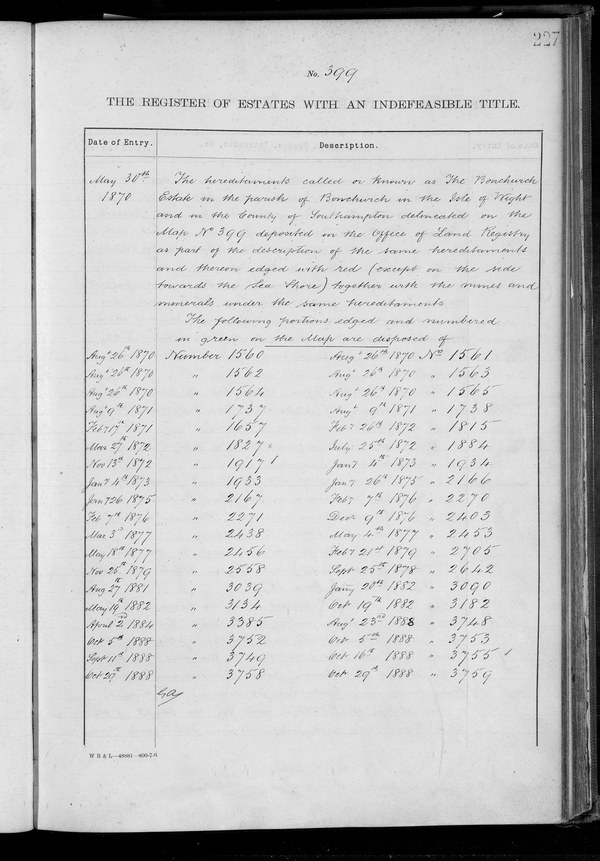 227
No. 399
THE REGISTER OF ESTATES WITH AN INDEFEASIBLE TITLE.
Date of Entry. Description.
May 30th 1870 The hereditaments called or known as The Bonchurch
Estate in the parish of Bonchurch in the Isle of Wight
and in the County of Southampton delineated on the
Map No 399 deposited in the Office of Land Registry
as part of the description of the same hereditaments
and thereon edged with red (except on the side
towards the Sea Shore) together with the mines and
minerals under the same hereditaments
The following portions edged and numbered
in green on the Map are disposed of
Augt 26th 1870 Number 1560 Augt 26th 1870 No 1561
Augt 26th 1870 " 1562 Augt 26th 1870 " 1563
Augt 26th 1870 " 1564 Augt 26th 1870 " 1565
Augt 9th 1871 " 1737 Augt 9th 1871 " 1738
Feby 17th 1871 " 1657 Feby 26th 1872 " 1815
Mar 27th 1872 " 1827 July 25th 1872 " 1884
Nov 13th 1872 " 1917 Jany 4th 1873 " 1934
Jany 4th 1873 " 1933 Jany 26th 1875 " 2166
Jany 26 1875 " 2167 Feby 7th 1876 " 2270
Feb 7th 1876 " 2271 Decr 9th 1876 " 2403
Mar 3rd 1877 " 2438 May 4th 1877 " 2453
May 18th 1877 " 2456 Feby 21st 1879 " 2705
Nov 25th 1879 " 2558 Sept 25th 1878 " 2642
Aug 27th 1881 " 3039 Jany 20th 1882 " 3090
May 19th 1882 " 3134 Oct 19th 1882 " 3182
April 2nd 1884 " 3385 Augt 23rd 1888 " 3748
Oct 5th 1888 " 3752 Oct 5th 1888 " 3753
Sept 11th 1888 " 3749 Oct 16th 1888 " 3755
Oct 29th 1888 " 3758 Oct 29th 1888 " 3759
W B & L—48881—800-7.6